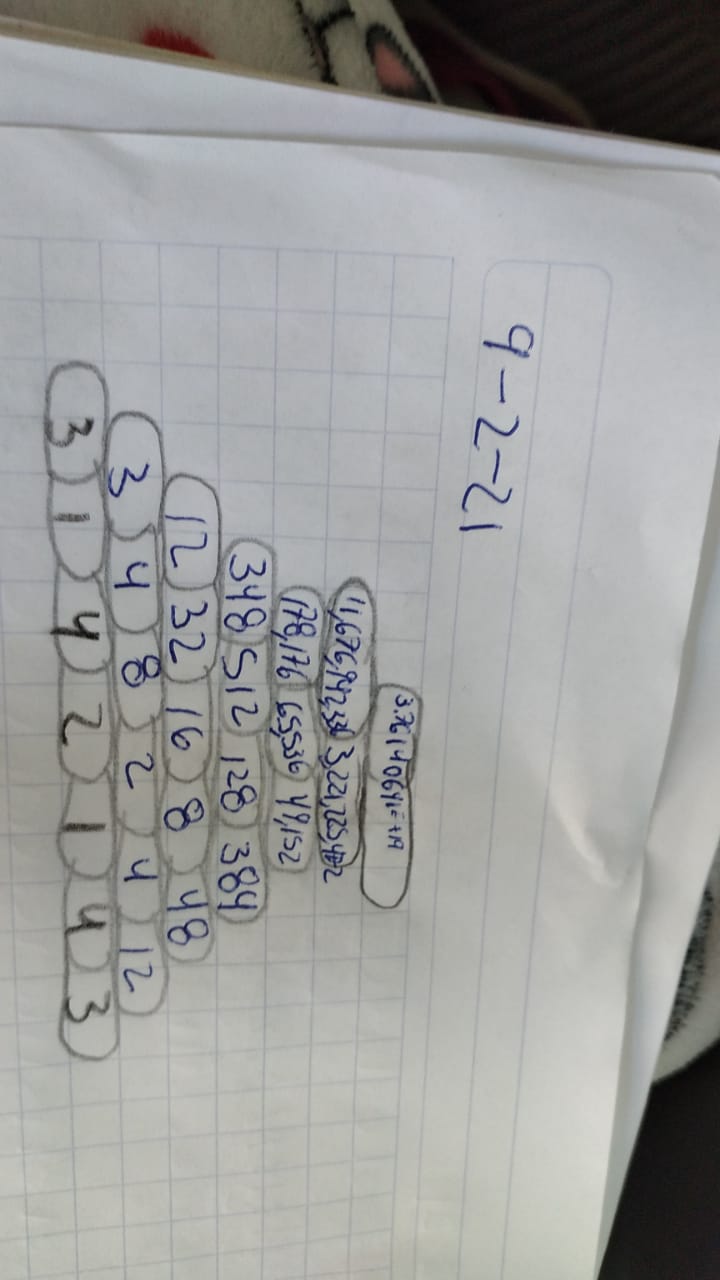 9-2-21
3.7614064 1E+19
11,676,942,336 3,221,225,472
178,176 65,536 49,152
348 512 128 384
12 32 16 8 48
3 4 8 2 4 12
3 1 4 2 1 4 3